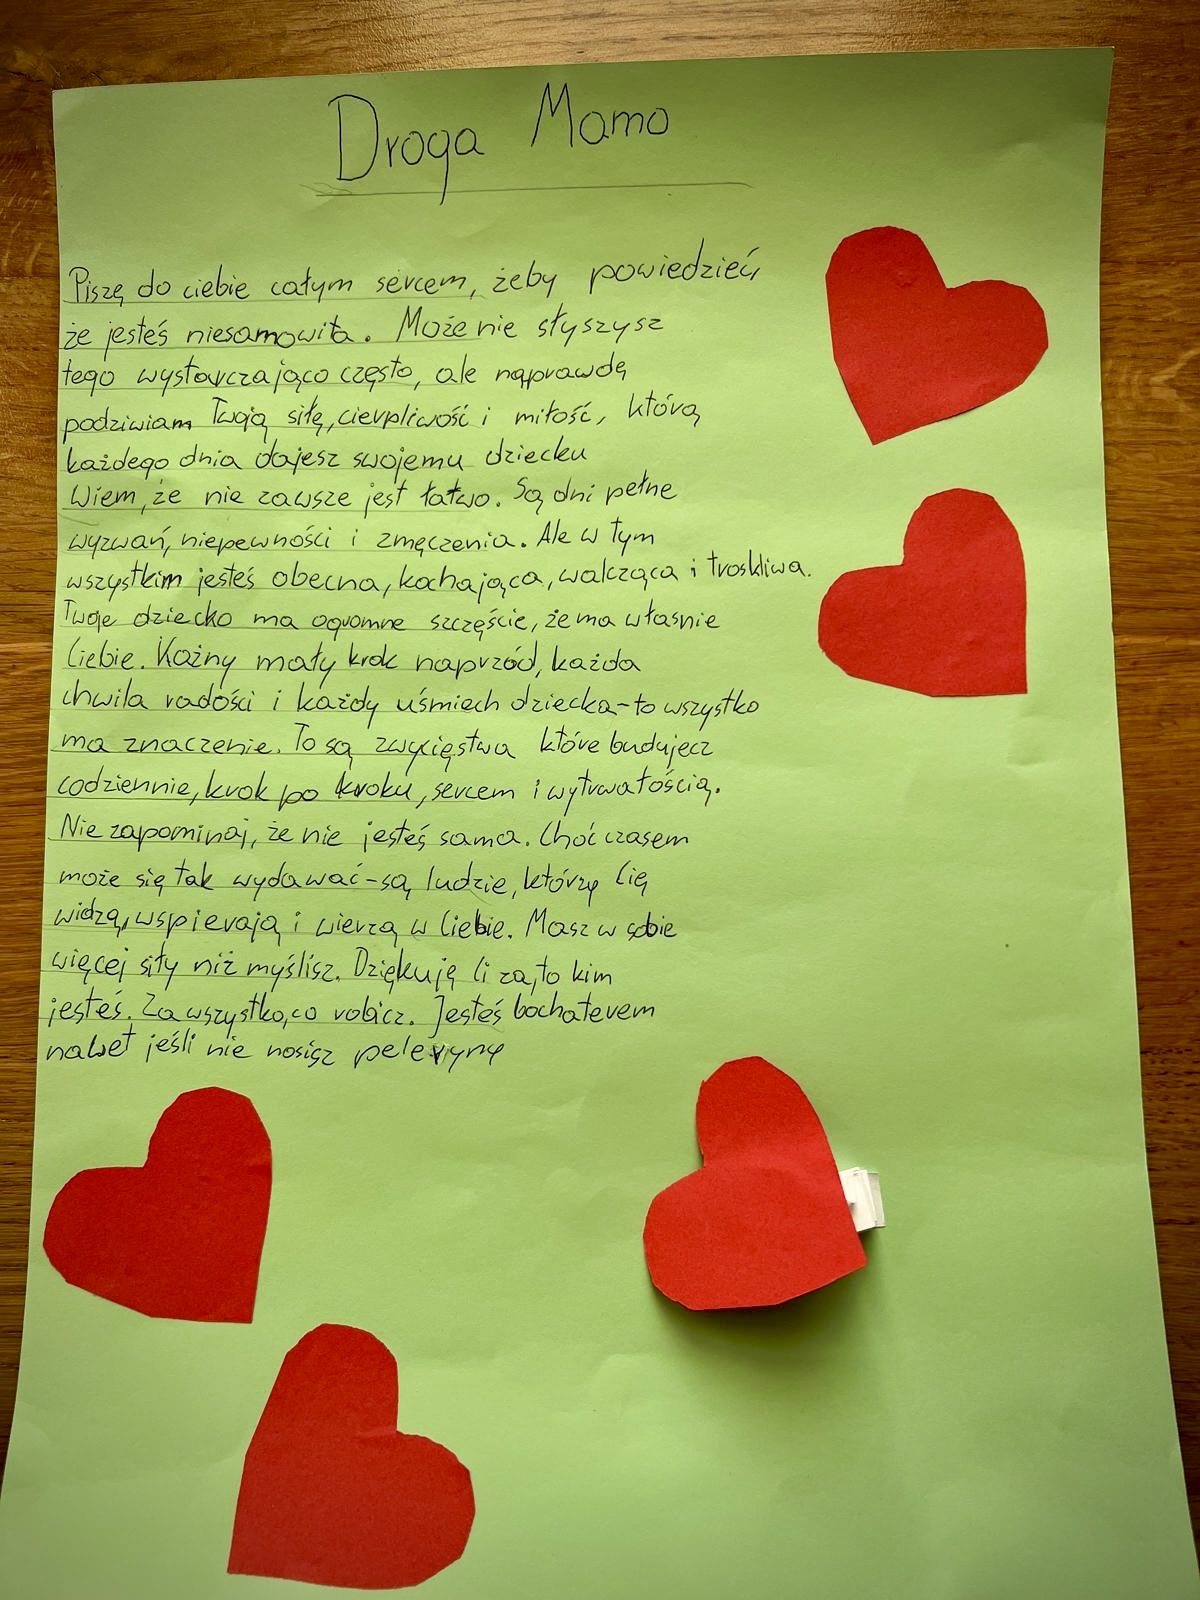 Droga Mamo
Piszę do ciebie całym sercem, żeby powiedzieć,
że jesteś niesamowita. Może nie słyszysz
tego wystarczająco często, ale naprawdę
podziwiam Twoją siłę, cierpliwość i miłość, którą
każdego dnia dajesz swojemu dziecku
Wiem, że nie zawsze jest łatwo. Są dni pełne
wyzwań, niepewności i zmęczenia. Ale w tym
wszystkim jesteś obecna, kochająca, walcząca i troskliwa.
Twoje dziecko ma ogromne szczęście, że ma własnie
Ciebie. Każny mały krok naprzód, każda
chwila radości i każdy uśmiech dziecka-to wszystko
ma znaczenie. To są zwycięstwa które budujecz
codziennie, krok po kroku, sercem i wytrwałością.
Nie zapominaj, że nie jesteś sama. Choć czasem
może się tak wydawać-są ludzie, którzy Cię
widzą, wspierają i wierzą w Ciebie. Masz w sobie
więcej siły niż myślisz. Dziękuję Ci za to kim
jesteś. Za wszystko, co robicz. Jesteś bochaterem
nawet jeśli nie nosisz peleryny